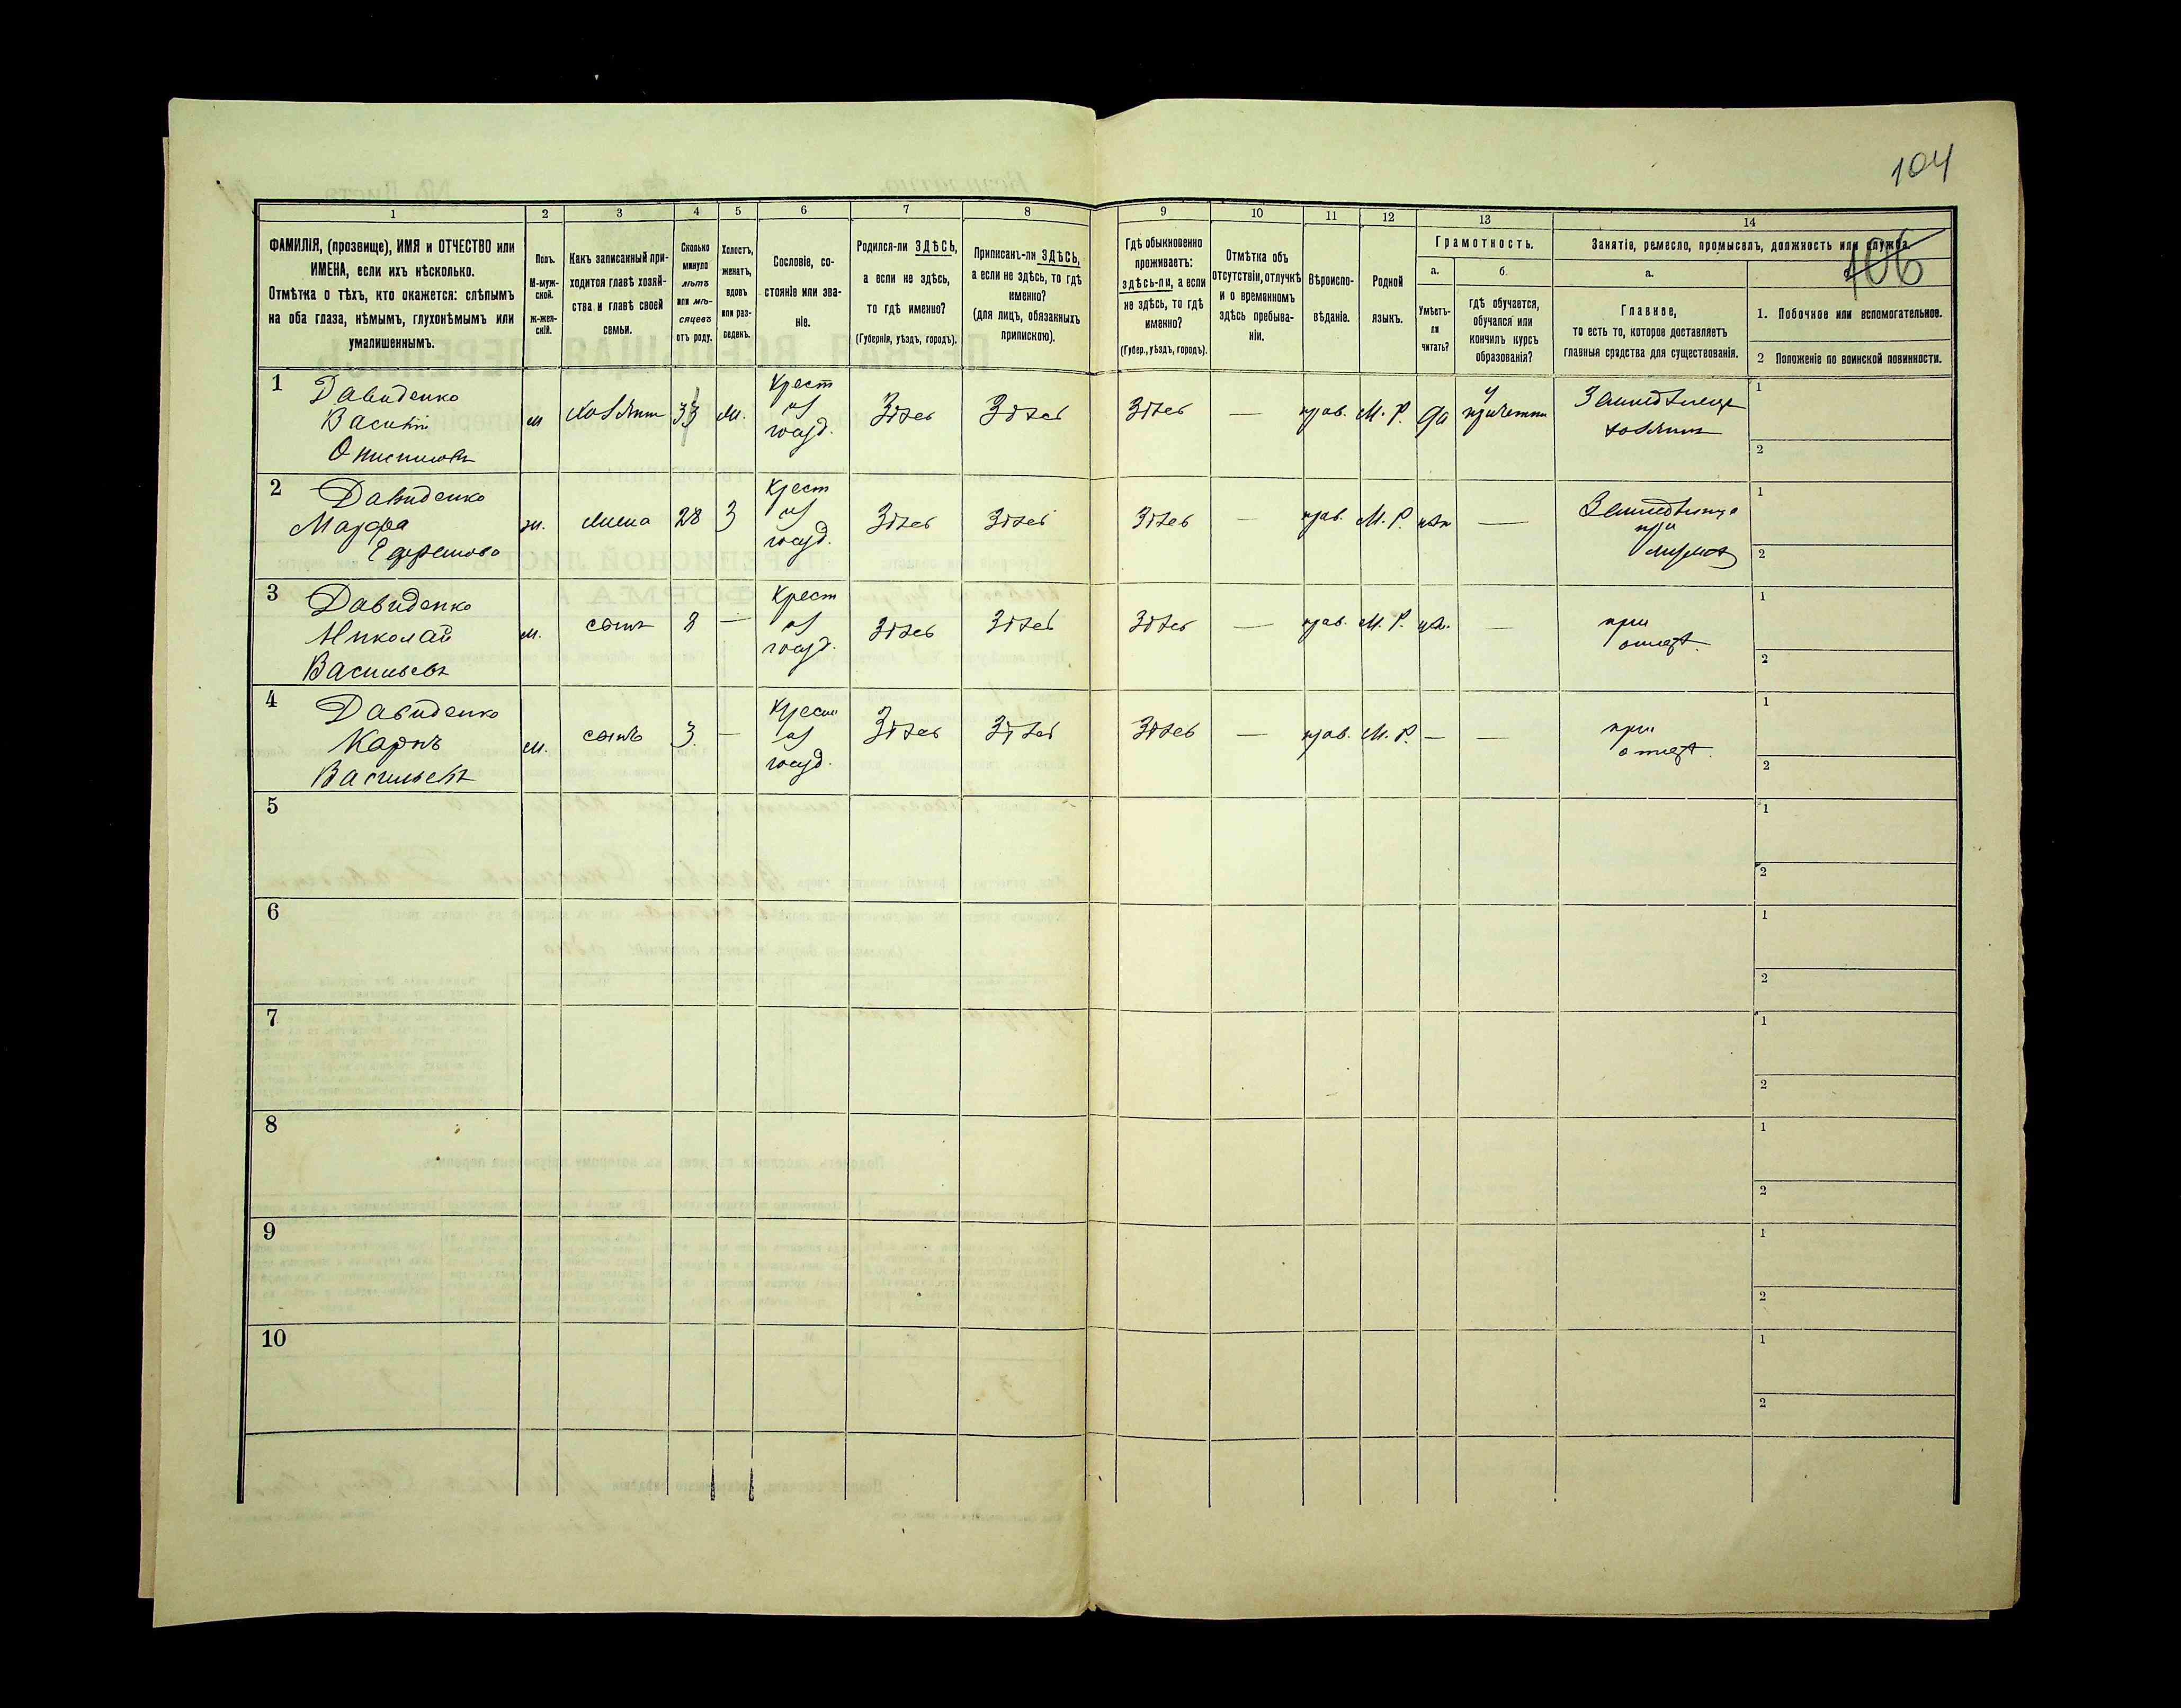 104
106
1 2 3 4 5 6 7 8 9 10 11 12 13 14
ФАМИЛІЯ, (прозвище), ИМЯ и ОТЧЕСТВО или
ИМЕНА, если ихъ нѣсколько.
Отмѣтка о тѣхъ, кто окажется: слѣпымъ
на оба глаза, нѣмымъ, глухонѣмымъ или
умалишеннымъ.
Полъ.
М-муж-
ской.
ж-жен-
скій.
Какъ записанный при-
ходится главѣ хозяй-
ства и главѣ своей
семьи.
Сколько
минуло
лѣтъ
или мѣ-
сяцевъ
отъ роду.
Холостъ,
женатъ,
вдовъ
или раз-
веденъ.
Сословіе, со-
стояніе или зва-
ніе.
Родился-ли ЗДѢСЬ,
а если не здѣсь,
то гдѣ именно?
(Губернія, уѣздъ, городъ).
Приписанъ-ли ЗДѢСЬ,
а если не здѣсь, то гдѣ
именно?
(для лицъ, обязанныхъ
припискою).
Гдѣ обыкновенно
проживаетъ:
здѣсь-ли, а если
не здѣсь, то гдѣ
именно?
(Губер., уѣздъ, городъ).
Отмѣтка объ
отсутствіи, отлучкѣ
и о временномъ
здѣсь пребыва-
ніи.
Вѣроиспо-
вѣданіе.
Родной
языкъ.
Грамотность.
а.
Умѣетъ-
ли
читать?
б.
гдѣ обучается,
обучался или
кончилъ курсъ
образованія?
Занятія, ремесло, промыселъ, должность или служба.
а.
Главное,
то есть то, которое доставляетъ
главныя средства для существованія.
1. Побочное или вспомогательное.
2 Положеніе по воинской повинности.
1
Давиденко
Василій
Онисимовъ
м
хозяинъ
33
Крест
из
госуд.
Здѣсь
Здѣсь
Здѣсь
—
прав.
М. Р.
да
у
Земледѣлецъ
хозяинъ
1
2
2
Давиденко
Марфа
Ефремова
ж.
жена
28
З
Крест
из
госуд.
Здѣсь
Здѣсь
Здѣсь
—
прав.
М. Р.
нѣт
—
при
мужѣ
1
2
3
Давиденко
Николай
Васильевъ
м.
сынъ
8
—
Крест
из
госуд.
Здѣсь
Здѣсь
Здѣсь
—
прав.
М. Р.
—
при
отцѣ.
1
2
4
Давиденко
Карпъ
Васильевъ
м.
сынъ
3.
—
Крест
из
госуд.
Здѣсь
Здѣсь
Здѣсь
—
прав.
М. Р.
—
—
при
отцѣ.
1
2
5
1
2
6
1
2
7
1
2
8
1
2
9
1
2
10
1
2